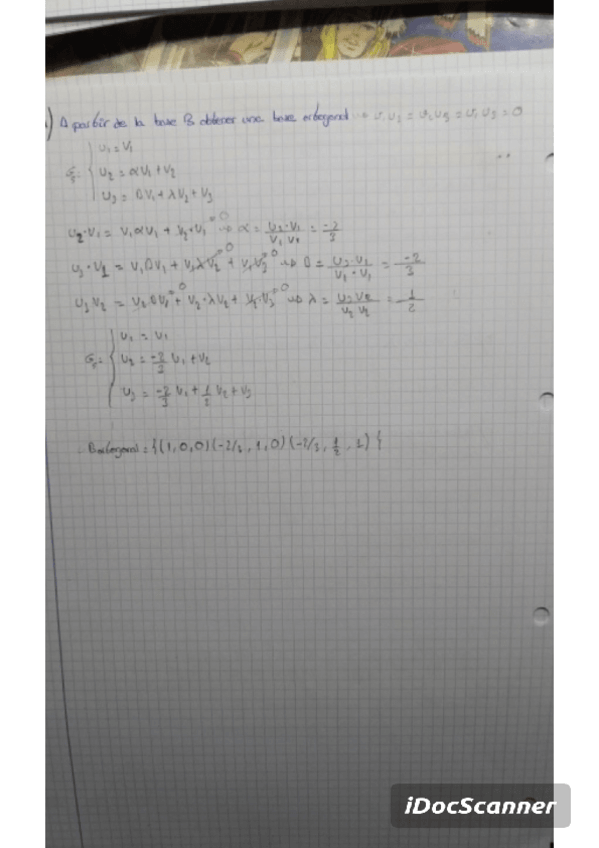 ) A partir de la base B obtener una base ortogonal → U₁U₂ = U₁U₃ = U₂U₃ = 0
U₁ = V₁
U₂ = αV₁ + V₂
U₃ = βV₁ + λV₂ + V₃
U₂·V₁ = V₁αV₁ + V₂·V₁ =0 → α = U₂·V₁ / V₁V₁ = -2/3
U₃·V₁ = V₁βV₁ + V₁λV₂ =0 + V₁V₃ =0 → β = U₃·V₁ / V₁·V₁ = -2/3
U₃V₂ = V₂·βV₁ =0 + V₂·λV₂ + V₂·V₃ =0 → λ = U₃V₂ / V₂V₂ = 1/2
U₁ = V₁
U₂ = -2/3 V₁ + V₂
U₃ = -2/3 V₁ + 1/2 V₂ + V₃
Bortogonal = {(1,0,0)(-2/3,1,0)(-2/3, 1/2, 1)}
iDocScanner